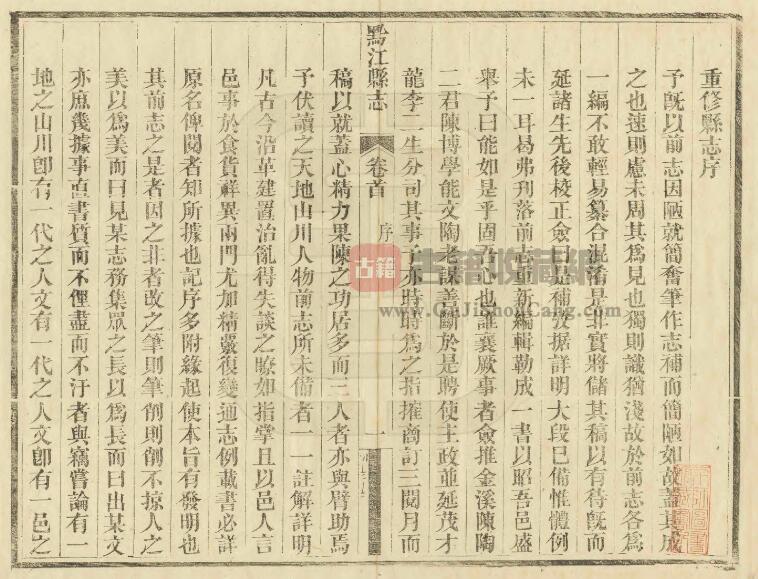 重修縣志序
予旣以前志因陋就簡奮筆作志補而簡陋如故蓋其成
之也速則慮未周其爲見也獨則識猶淺故於前志各爲
一編不敢輕易纂合混淆是非實將儲其稿以有待旣而
延諸生先後校正僉曰是補攷据詳明大段已備惟體例
未一耳曷弗刋落前志重新編輯勒成一書以昭吾邑盛
舉予曰能如是乎固吾心也誰襄厥事者僉推金溪陳陶
二君陳博學能文陶老謀善斷於是聘使主政並延茂才
龍李二生分司其事予亦時時爲之指摧商訂三閱月而
黔江縣志 卷首 序 一
稿以就蓋心精力果陳之功居多而三人者亦與臂助焉
予伏讀之天地山川人物前志所未備者一一註解詳明
凡古今沿革建置治亂得失談之瞭如指掌且以邑人言
邑事於食貨祥異兩門尤加精覈復變通志例載書必詳
原名俾閱者知所據也記序多附緣起使本旨有發明也
其前志之是者因之非者改之筆則筆削則削不掠人之
美以爲美而曰見某志務集眾之長以爲長而曰出某文
亦庶幾據事直書質而不俚盡而不汙者與竊嘗論有一
地之山川卽有一代之人文有一代之人文卽有一邑之
古籍
古籍收藏网
www.GuJiShouCang.com